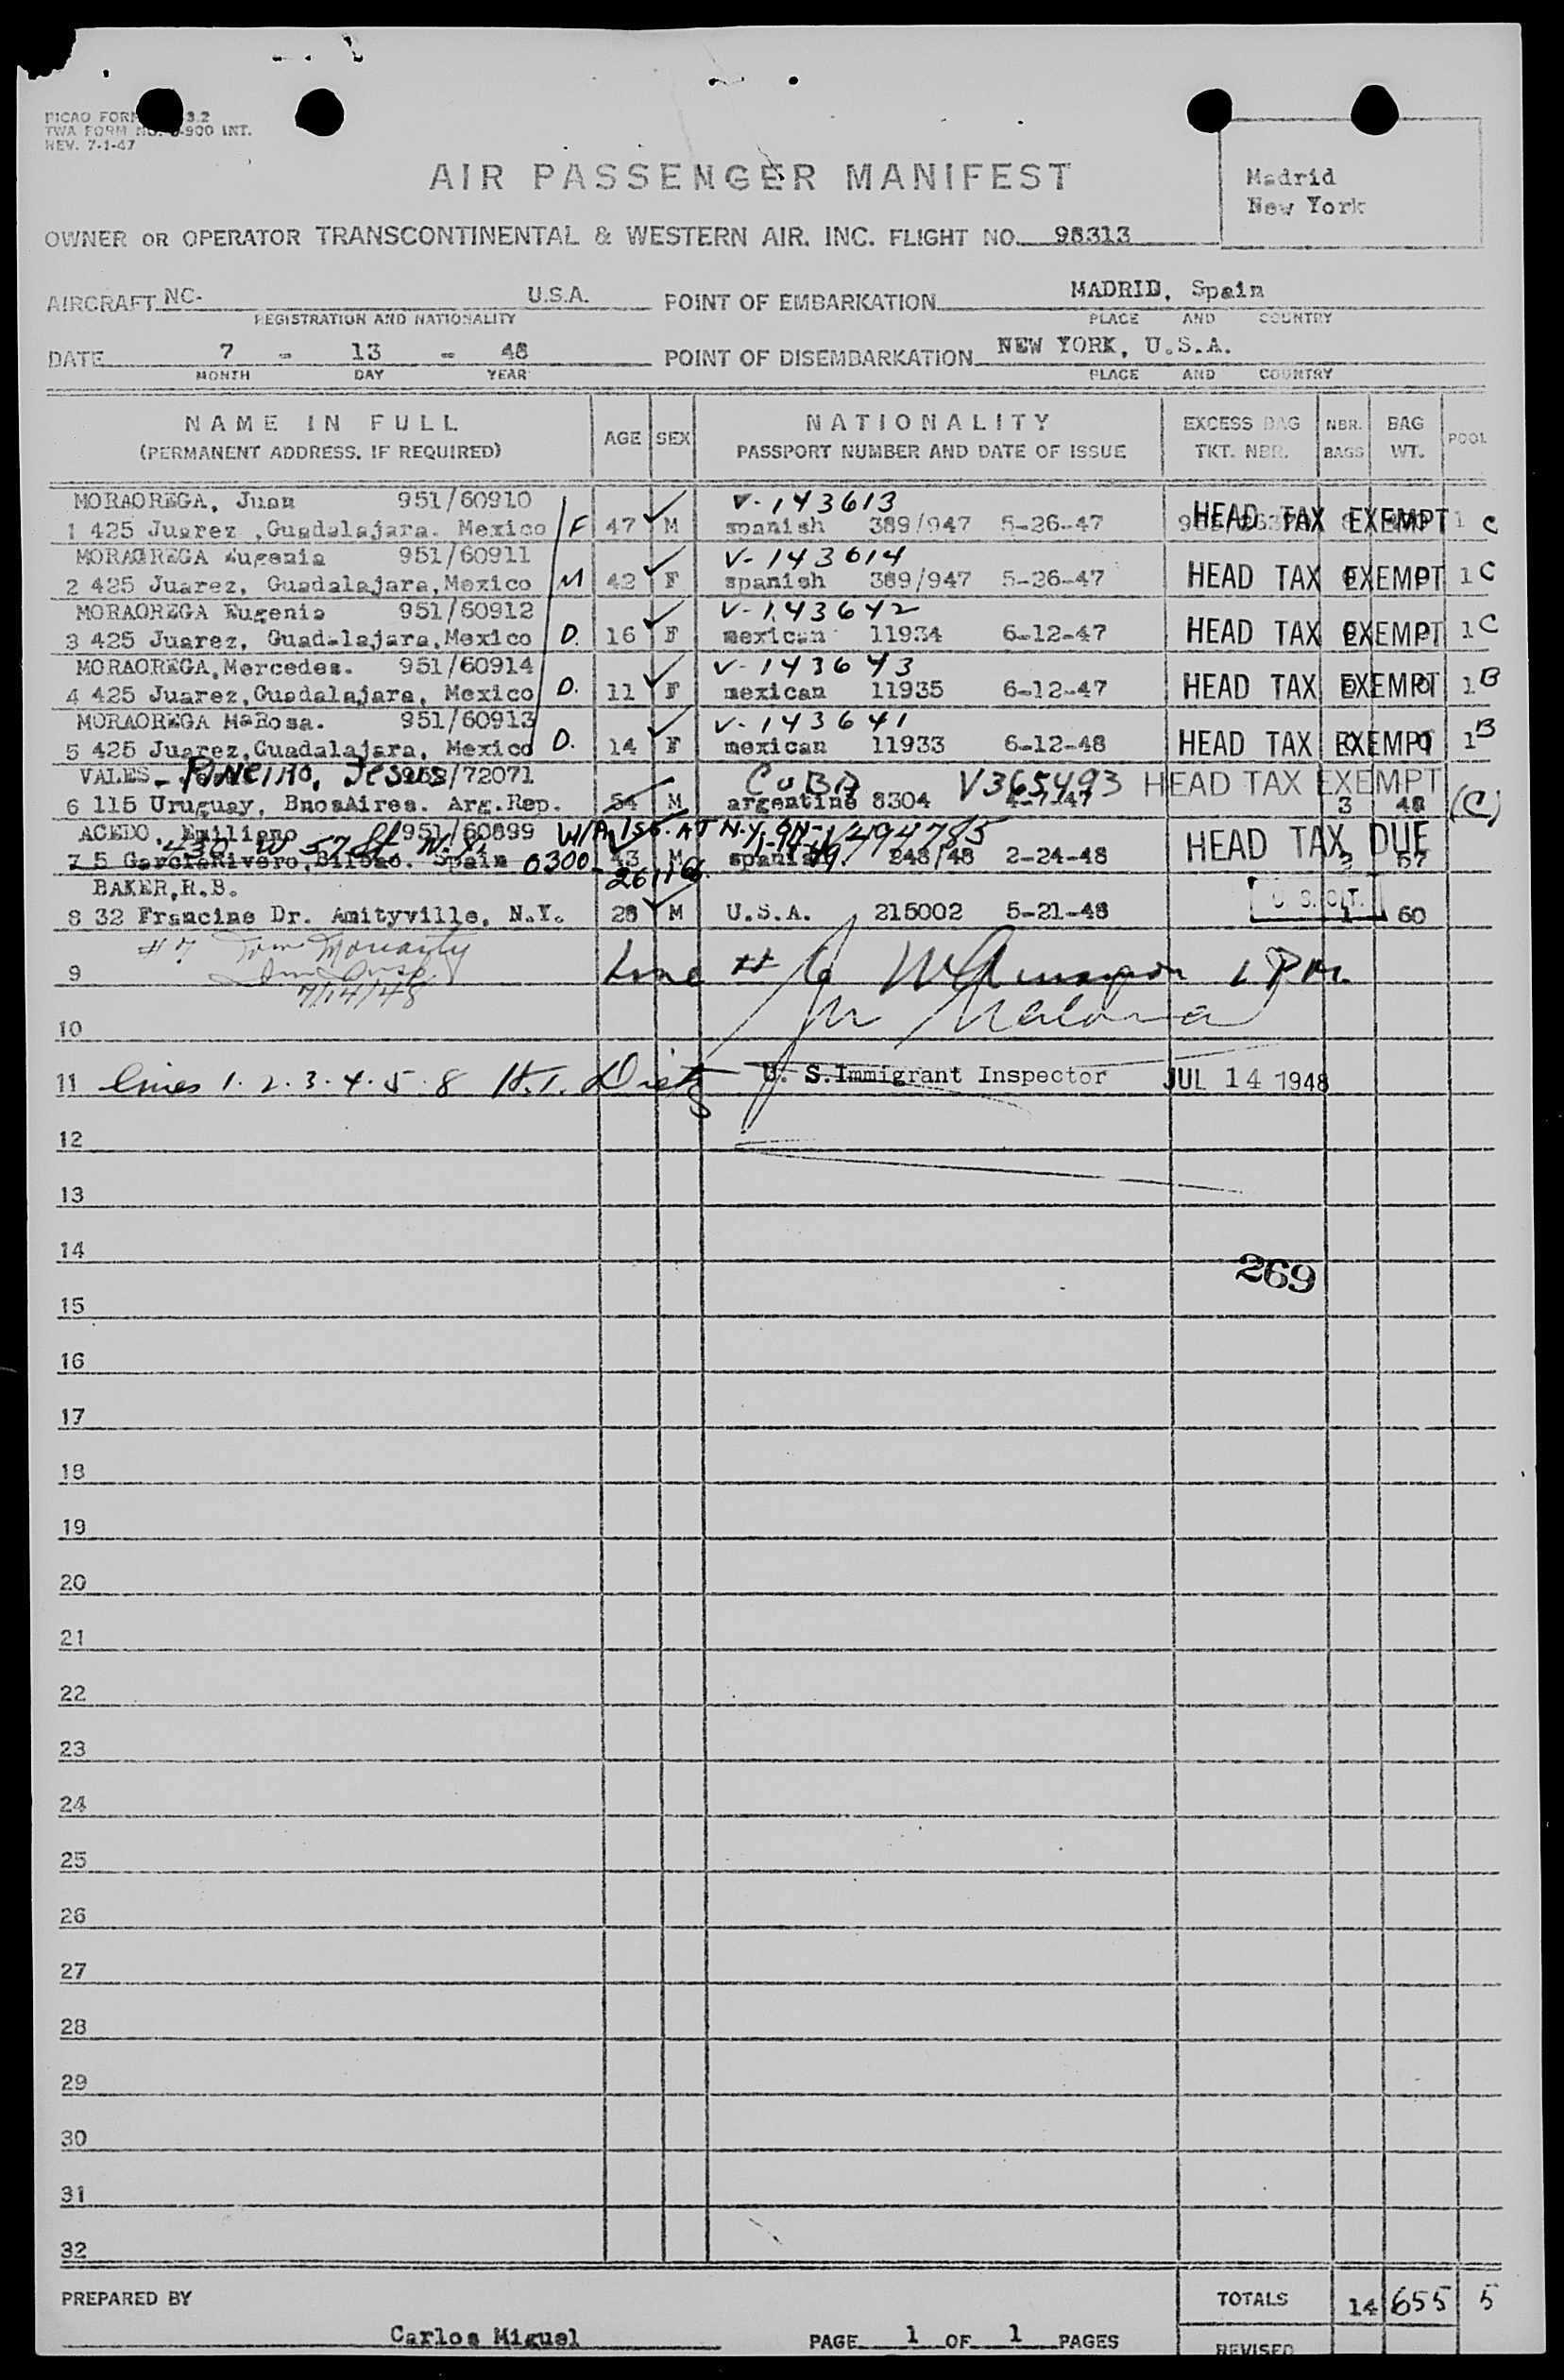 PICAO FORM 3.2
TWA FORM NO. -900 INT.
REV. 7-1-47
AIR PASSENGER MANIFEST
Madrid
New York
OWNER OR OPERATOR TRANSCONTINENTAL & WESTERN AIR. INC. FLIGHT NO. 98313
AIRCRAFT NC- U.S.A. POINT OF EMBARKATION MADRID, Spain
REGISTRATION AND NATIONALITY PLACE AND COUNTRY
DATE 7 - 13 - 48 POINT OF DISEMBARKATION NEW YORK, U.S.A.
MONTH DAY YEAR PLACE AND COUNTRY
NAME IN FULL AGE SEX NATIONALITY EXCESS BAG NBR. BAG POOL
(PERMANENT ADDRESS. IF REQUIRED) PASSPORT NUMBER AND DATE OF ISSUE TKT. NBR. BAGS WT.
MORAOREGA, Juan 951/60910 V-143613
1 425 Juarez ,Guadalajara. Mexico F 47 M spanish 389/947 5-26-47 HEAD TAX EXEMPT 1 C
MORAOREGA Eugenia 951/60911 V-143614
2 425 Juarez, Guadalajara,Mexico M 42 F spanish 389/947 5-26-47 HEAD TAX EXEMPT 1 C
MORAOREGA Eugenia 951/60912 V-143642
3 425 Juarez, Guadalajara,Mexico D. 16 F mexican 11934 6-12-47 HEAD TAX EXEMPT 1 C
MORAOREGA,Mercedes. 951/60914 V-143643
4 425 Juarez,Guadalajara, Mexico D. 11 F mexican 11935 6-12-47 HEAD TAX EXEMPT 1 B
MORAOREGA MaRosa. 951/60913 V-143641
5 425 Juarez,Guadalajara, Mexico D. 14 F mexican 11933 6-12-48 HEAD TAX EXEMPT 1 B
VALES - PINEIRO, Jesus /72071 CUBA V365493 HEAD TAX EXEMPT
6 115 Uruguay, BnosAires. Arg.Rep. 54 M argentine 8304 4-7-47 3 48 (C)
ACEDO, Emiliano 951/60899 W/A ISS. AT N.Y. ON V494785 HEAD TAX DUE
430 W 57 St N.Y.
7 5 GarciaRivero,Bilbao. Spain 0300- 43 M spanish 248/48 2-24-48 2 57
BAKER,R.B. 26116
8 32 Francine Dr. Amityville, N.Y. 28 M U.S.A. 215002 5-21-48 U. S. CIT. 1 60
#7 Tom Moriarty
9 Line # 6
7/14/48
10
11 lines 1.2.3.4.5.8 H.T. Dietz U. S. Immigrant Inspector JUL 14 1948
12
13
14
269
15
16
17
18
19
20
21
22
23
24
25
26
27
28
29
30
31
32
PREPARED BY TOTALS 14 655 5
Carlos Miguel PAGE 1 OF 1 PAGES
REVISED